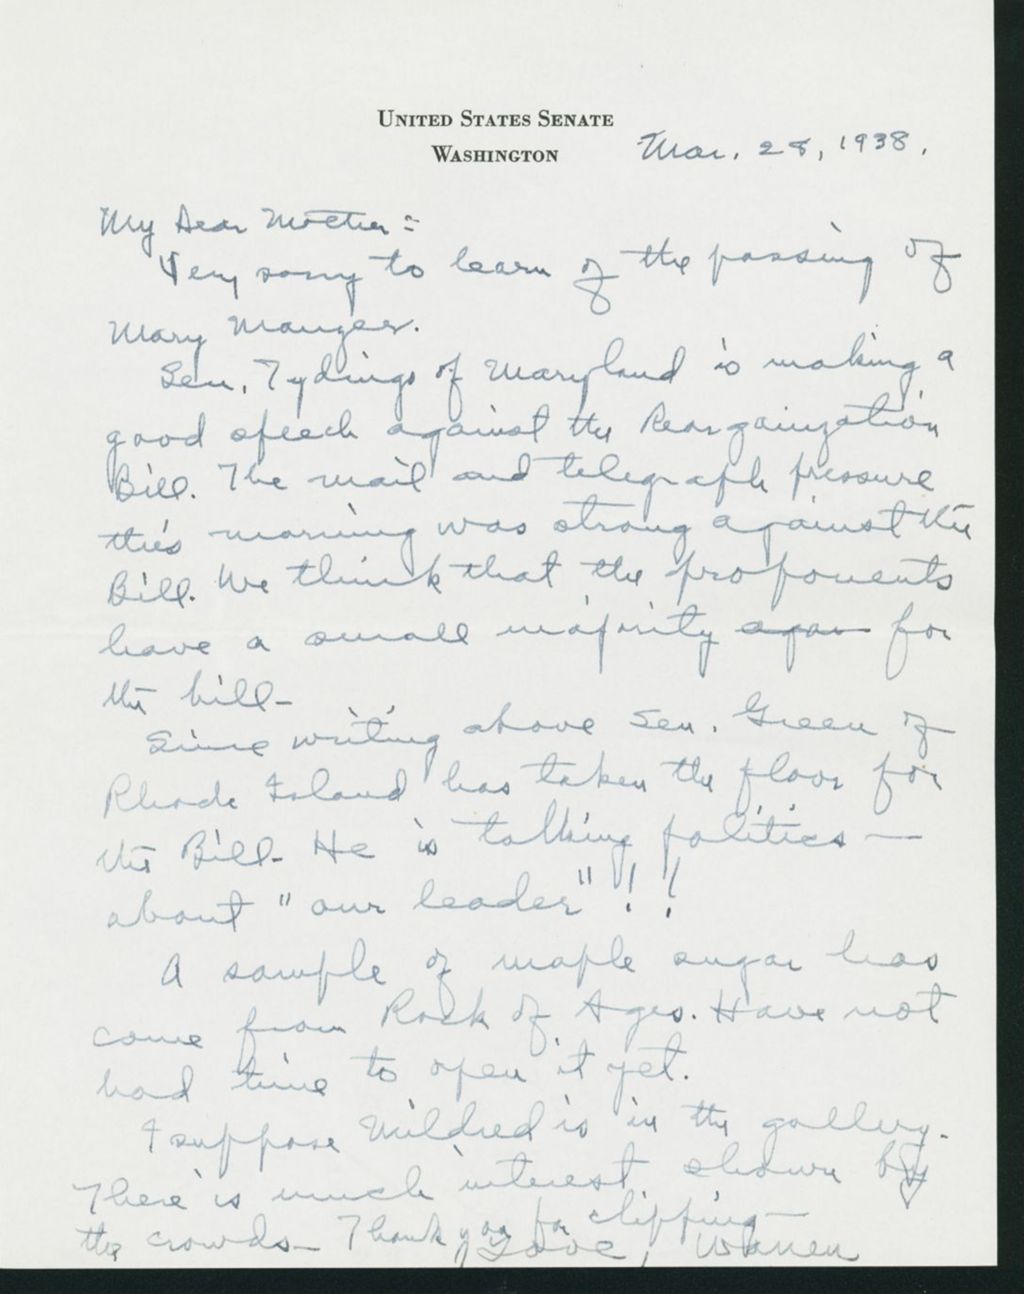 UNITED STATES SENATE
WASHINGTON
Mar. 28, 1938.
My Dear Mother:
Very sorry to learn of the passing of
Mary
Sen. Tydings of Maryland is making a
good speech against the Reorganization
Bill. The mail and telegraph pressure
this morning was strong against the
Bill. We think that the proponents
have a small majority for
the bill-
Since writing above Sen. Green of
Rhode Island has taken the floor for
the Bill- He is talking politics—
about "our leader"!!
A sample of maple sugar has
come from Rock of Ages. Have not
had time to open it yet.
I suppose Mildred is in the gallery.
There is much interest shown by
the crowds- Thank you for clipping-
Love, Warren